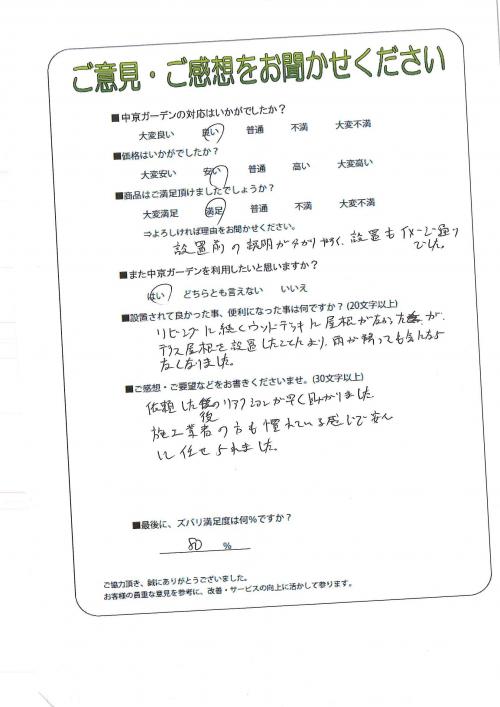 ご意見・ご感想をお聞かせください
■中京ガーデンの対応はいかがでしたか？
大変良い 良い 普通 不満 大変不満
■価格はいかがでしたか？
大変安い 安い 普通 高い 大変高い
■商品はご満足頂けましたでしょうか？
大変満足 満足 普通 不満 大変不満
⇒よろしければ理由をお聞かせください。
設置前の説明が分かりやすく、設置もイメージ通り
でした。
■また中京ガーデンを利用したいと思いますか？
はい どちらとも言えない いいえ
■設置されて良かった事、便利になった事は何ですか？(20文字以上)
リビングに続くウッドデッキに屋根がなかったが、
テラス屋根を設置したことにより、雨が降っても
なくなりました。
■ご感想・ご要望などをお書きくださいませ。(30文字以上)
依頼した後のリアクションが早く助かりました
施工業者の方も慣れている感じで安心
に任せられました。
■最後に、ズバリ満足度は何％ですか？
80 ％
ご協力頂き、誠にありがとうございました。
お客様の貴重な意見を参考に、改善・サービスの向上に活かして参ります。